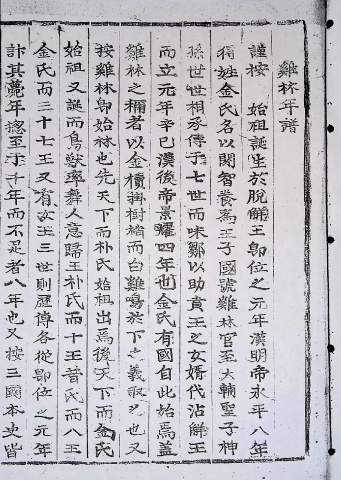 雞林年譜
謹按 始祖誕生於脫解王卽位之元年漢明帝永平八年
得姓金氏名以閼智養爲王子國號雞林官至大輔聖子神
孫世世相承傳于七世而味鄒以助賁王之女婿代沾解王
而立元年辛巳漢後帝景耀四年也金氏有國自此始焉盖
雞林之稱者以金櫝掛樹梢而白雞鳴於下之義取也又
按雞林卽始林也先天下而朴氏始祖出焉後天下而金氏
始祖又誕而鳥獸率舞人意歸王朴氏而十王昔氏而八王
金氏而三十七王又有女王三世則歷傳各從卽位之元年
計其薨年摠至于千年而不足者八年也又按三國本史皆